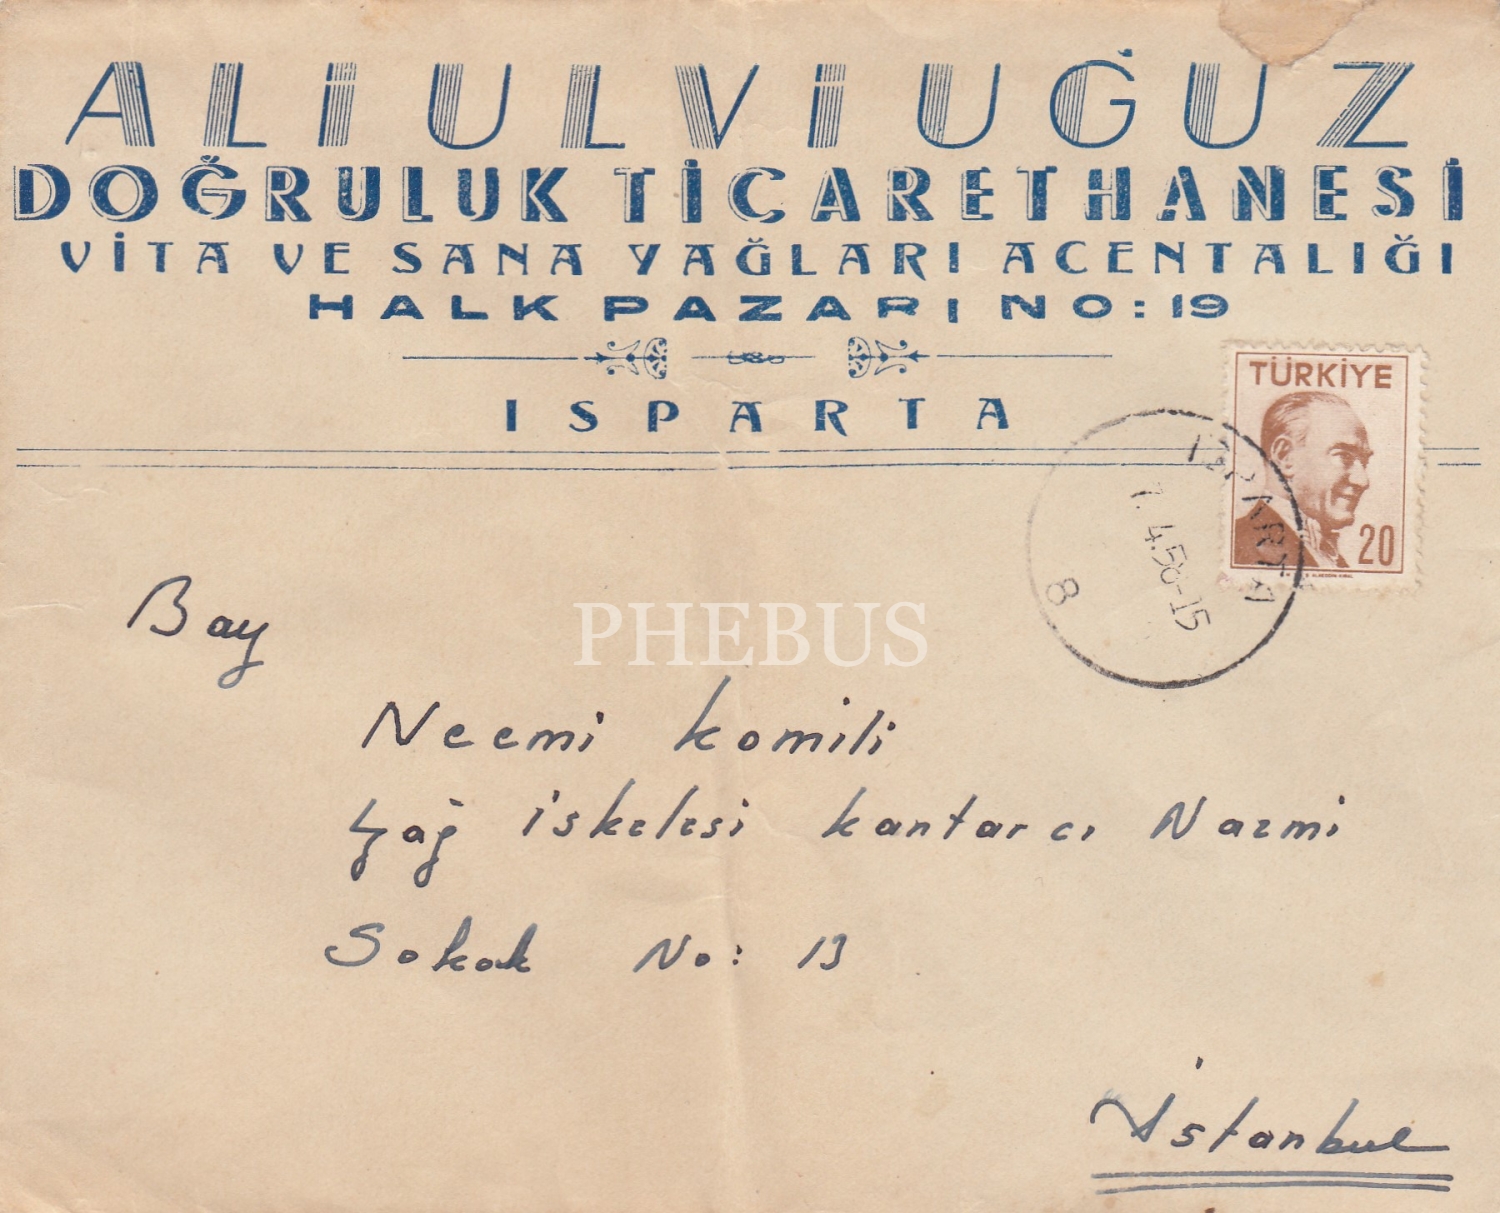 ALİ ULVİ UĞUZ
DOĞRULUK TİCARETHANESİ
VİTA VE SANA YAĞLARI ACENTALIĞI
HALK PAZARI NO: 19
ISPARTA
TÜRKİYE
20
ISPARTA
7.4.58-15
8
Bay
PHEBUS
Necmi Komili
Yağ iskelesi kantarcı Nazmi
Sokak No: 13
İstanbul